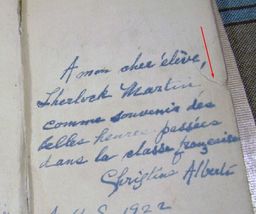 A mon cher élève,
Sherlock Martin
comme souvenir des
belles heures passées
dans la classe française
Christine Alberti
1922